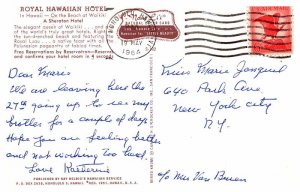 ROYAL HAWAIIAN HOTEL
In Hawaii — On the Beach at Waikiki
A Sheraton Hotel
The elegant queen of Waikiki and one
of the world's truly great hotels. Right
on the beach and featuring the
Royal Luau - a native feast with all
Polynesian pageantry of bygone times.
Free Reservations by Reservatron — Reserves and
confirms your hotel room in 4 seconds!
19 MAY
1964
Dear Marie
We are leaving here the
27th going up to see my
brother for a couple of days
Hope you are feeling better
and not working too hard
Love Katherine
Miss Marie Jonquil
640 Park Ave.
New York City
N.Y.
c/o Mrs Van Buren
PUBLISHED BY RAY HELBIG'S HAWAIIAN SERVICE
P. O. BOX 2835 HONOLULU 3, HAWAII